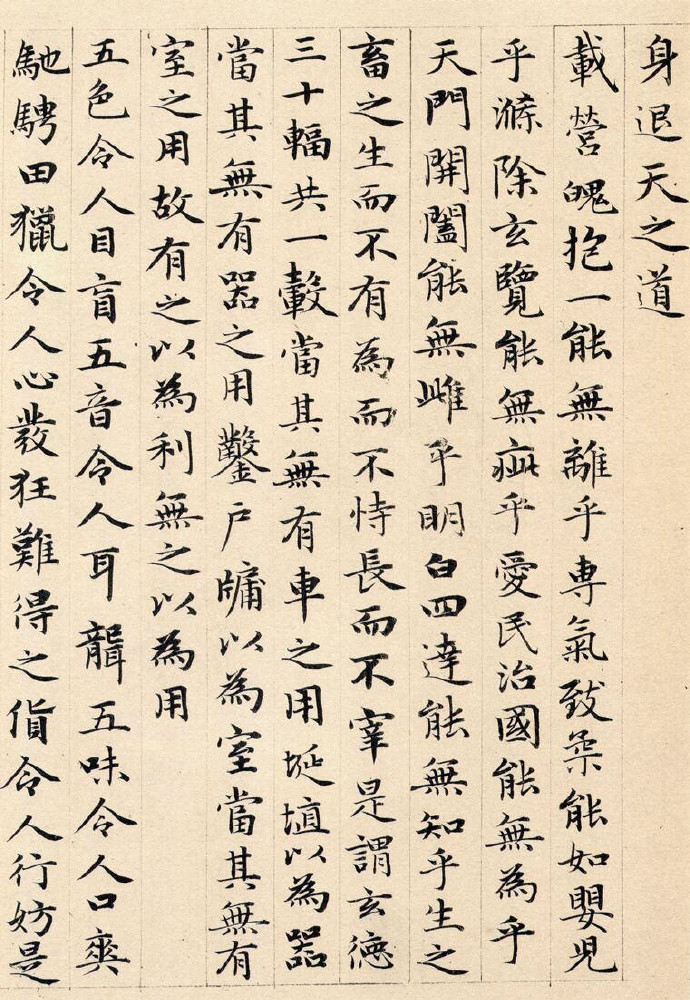 身退天之道
載營魄抱一能無離乎専氣致柔能如嬰児
乎滌除玄覽能無疵乎愛民治國能無為乎
天門開闔能無雌乎明白四達能無知乎生之
畜之生而不有為而不恃長而不宰是謂玄德
三十輻共一轂當其無有車之用埏埴以為器
當其無有器之用鑿戶牖以為室當其無有
室之用故有之以為利無之以為用
五色令人目盲五音令人耳聾五味令人口爽
馳騁田獵令人心發狂難得之貨令人行妨是